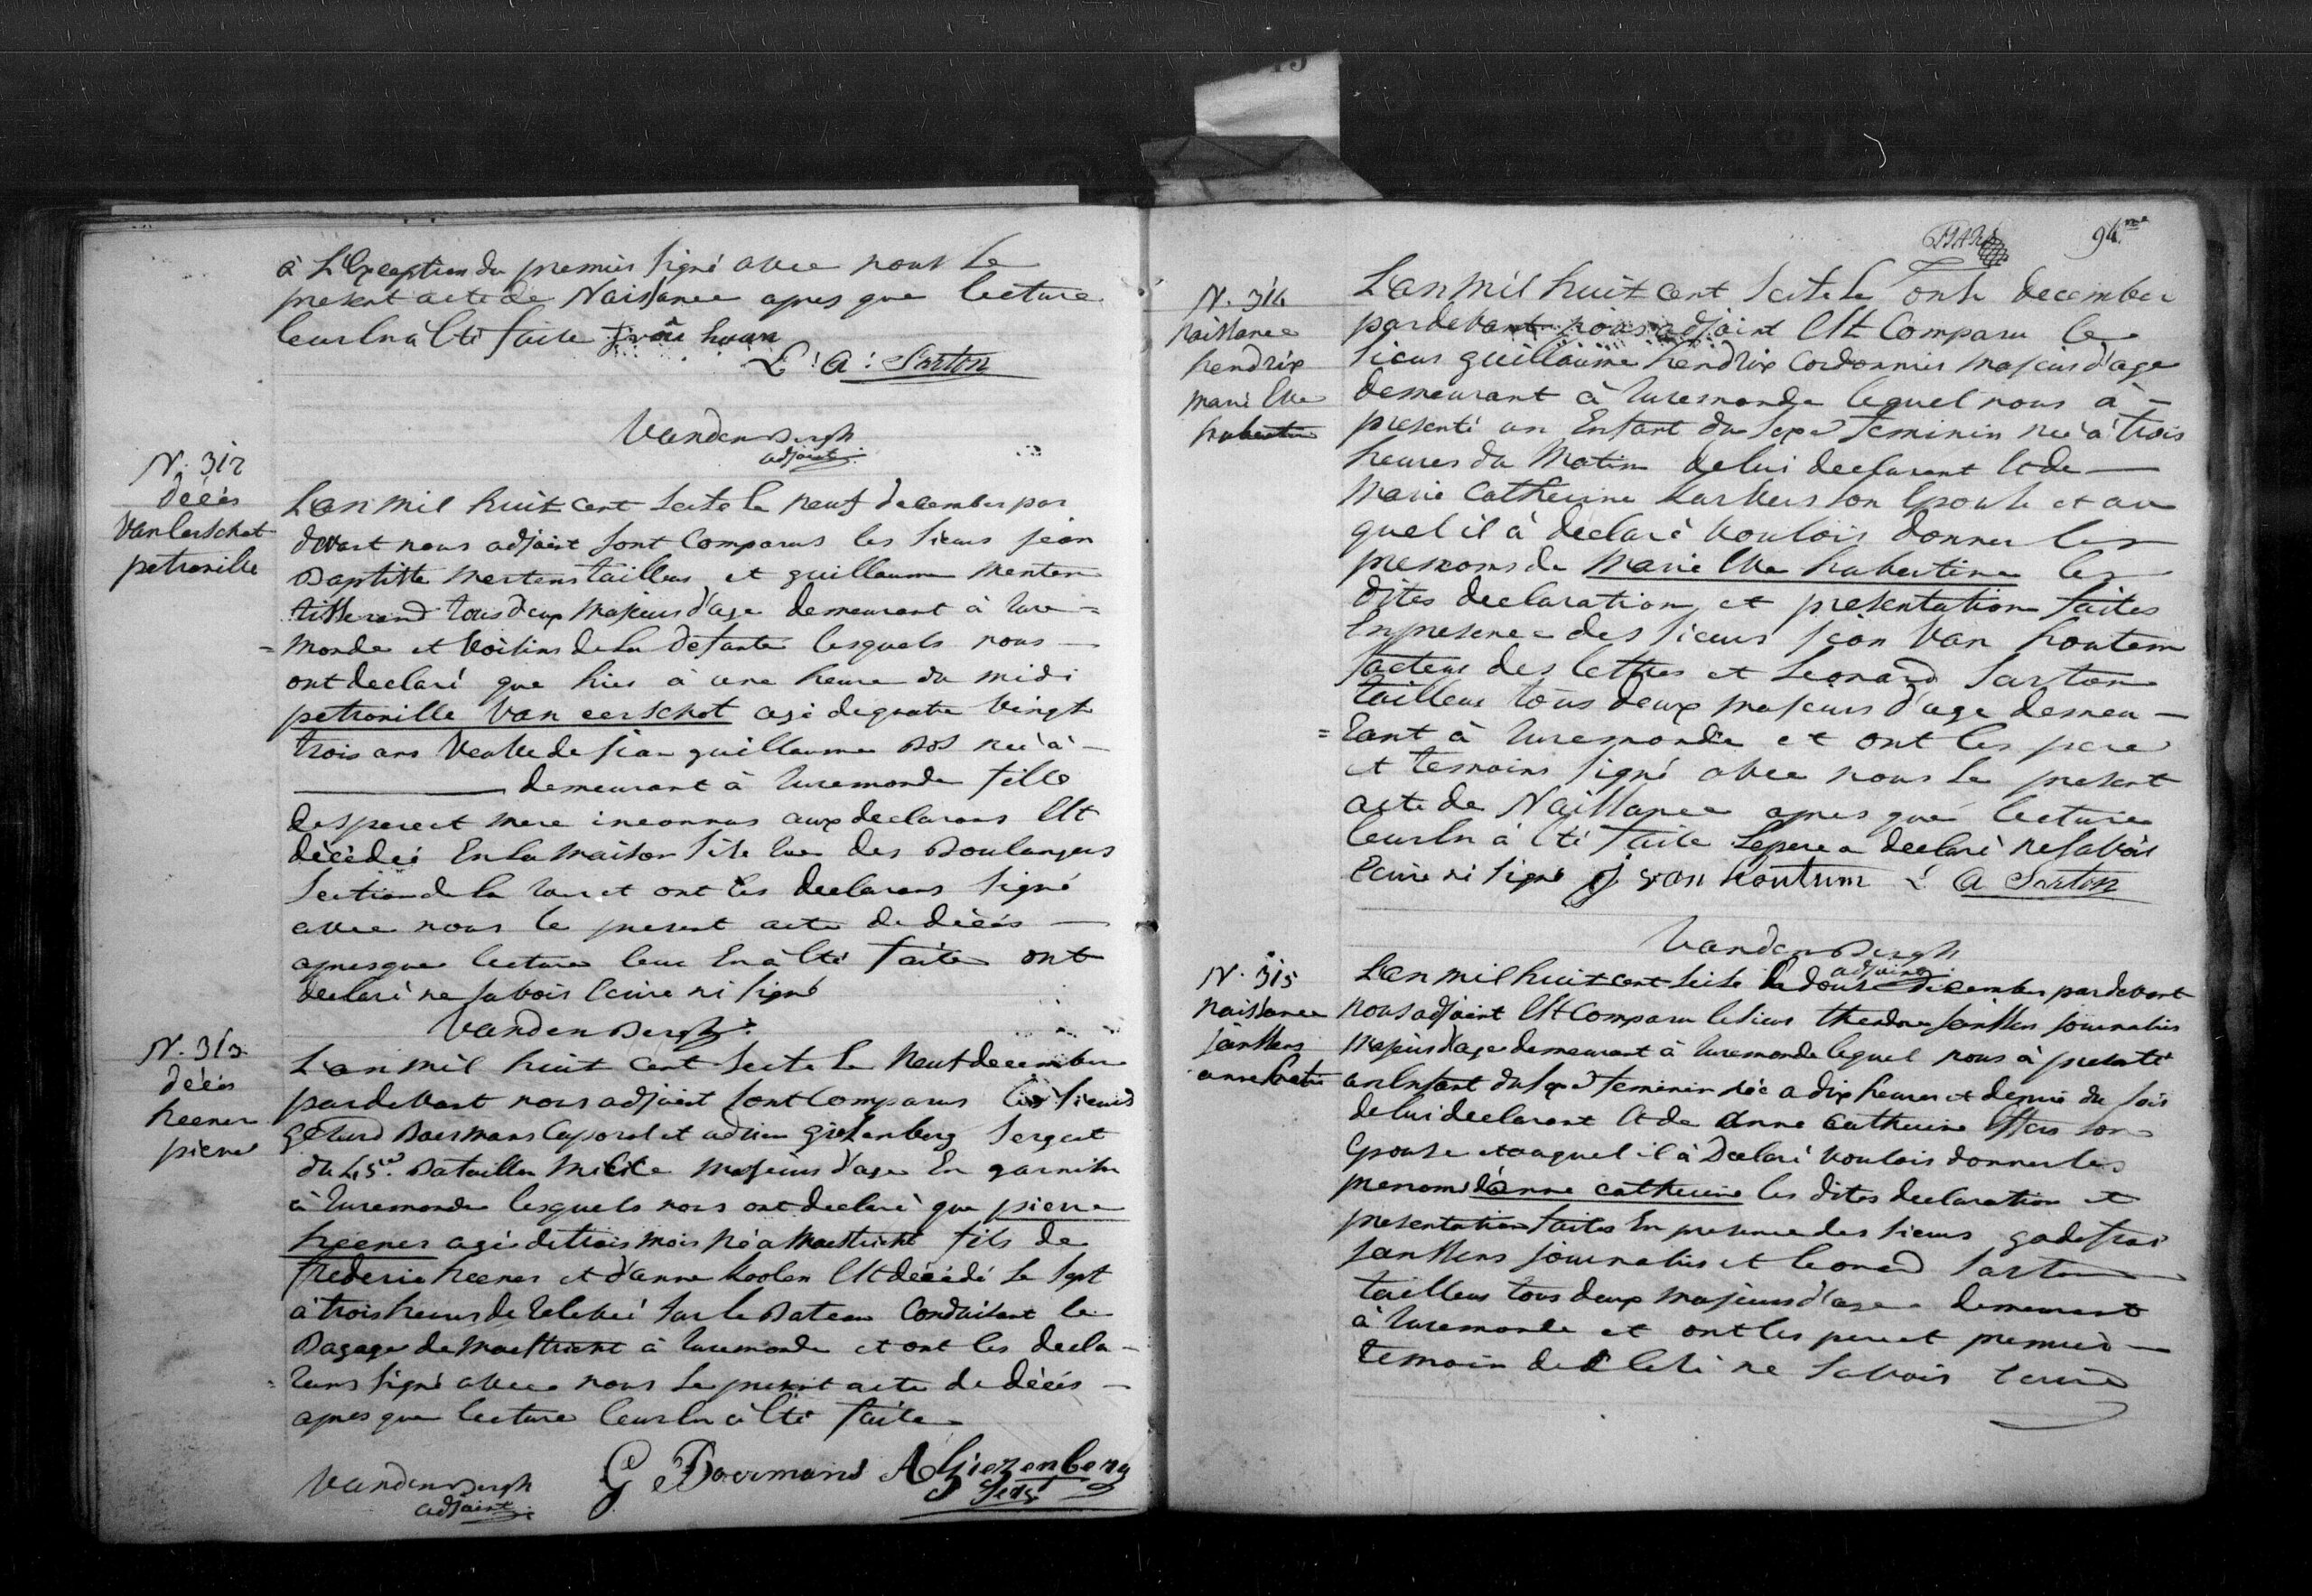 à L'Exception du premier signé avec nous le
present acte de Naissance apres que lecture
leur En à Eté faite
L: A: Sarton
VandenBergh
adjoint
N. 312
décés
Van Eerschot
petronille
L'an mil huit cent seize le neuf december par
devant nous adjoint sont Comparus les sieurs jean
Baptiste Mertens tailleur et guillaume Menten
tisserand tous deux majeurs d'age demeurant à Rure=
=monde et Voisins de la defante lesquels nous
ont declaré que hier à une heure du midi
petronille Van eerschot agé de quatre Vingt
trois ans Veuve de jean guillaume Bos née à
demeurant à Ruremonde fille
des pere et mere inconnus aux declarans Est
décédée En la maison sise Rue des Boulangers
Section de la et ont les declarans signé
avec nous le present acte de décés
apres que lecture leur En à Eté faite ont
declaré ne savoir Ecrire ni signé
Vanden Bergh
N. 313
décés
heener
pierre
L'an mil huit cent seize le Neuf december
pardevant nous adjoint sont Comparus les sieurs
Gerard Boermans Caporal et adrien giezenberg Sergent
du 45e Bataillon Milice majeurs d'age En garnison
à Ruremonde lesquels nous ont declaré que pierre
heener agé de trois mois né a Maestricht fils de
frederic heener et d'anne Koolen Est décédé le sept
à trois heures de Relevée sur le Bateau Conduisant le
Bagage de Maestricht à Ruremonde et ont les decla-
=rans signé avec nous le present acte de décés
apres que lecture leur En à Eté faite
VandenBergh
adjoint
G Boermans A Giezenberg
Sergt
94me
N. 314
Naissance
hendrix
marie Eve
hubertine
L'an mil huit cent seize le onze december
pardevant nous adjoint Est Comparu le
sieur guillaume hendrix Cordonnier majeur d'age
demeurant à Ruremonde lequel nous à
presenté un Enfant du sexe feminin née à trois
heures du Matin de lui declarant et de
Marie Catherine son Epouse et au
quel il à declaré Vouloir donner les
prenoms de Marie Eve hubertine les
dites declaration et presentation faites
En presence des sieurs jean Van houtem
facteur des lettres et Leonard Sarton
tailleur tous deux majeurs d'age demeu-
=rant à Ruremonde et ont les pere
et temoins signé avec nous le present
acte de Naissance apres que lecture
leur En à Eté faite Le pere a declaré ne savoir
Ecrire ni signé J van houtum L: A Sarton
VandenBergh
adjoint
N. 315
Naissance
janssens
anne Catherine
L'an mil huit cent seize le douze december pardevant
nous adjoint Est Comparu le sieur theodore janssens journalier
Majeur d'age demeurant à Ruremonde lequel nous à presenté
un Enfant du sexe feminin née a dix heures et demie du soir
de lui declarant et de Anne Catherine son
Epouse et auquel il à Declaré Vouloir donner les
prenoms d'anne catherine les dites declaration et
presentation faites En presence des sieurs godefroi
janssens journalier et leonard Sarton
tailleur tous deux Majeurs d'age demeurant
à Ruremonde et ont les pere et premier
temoin declaré ne savoir Ecrire